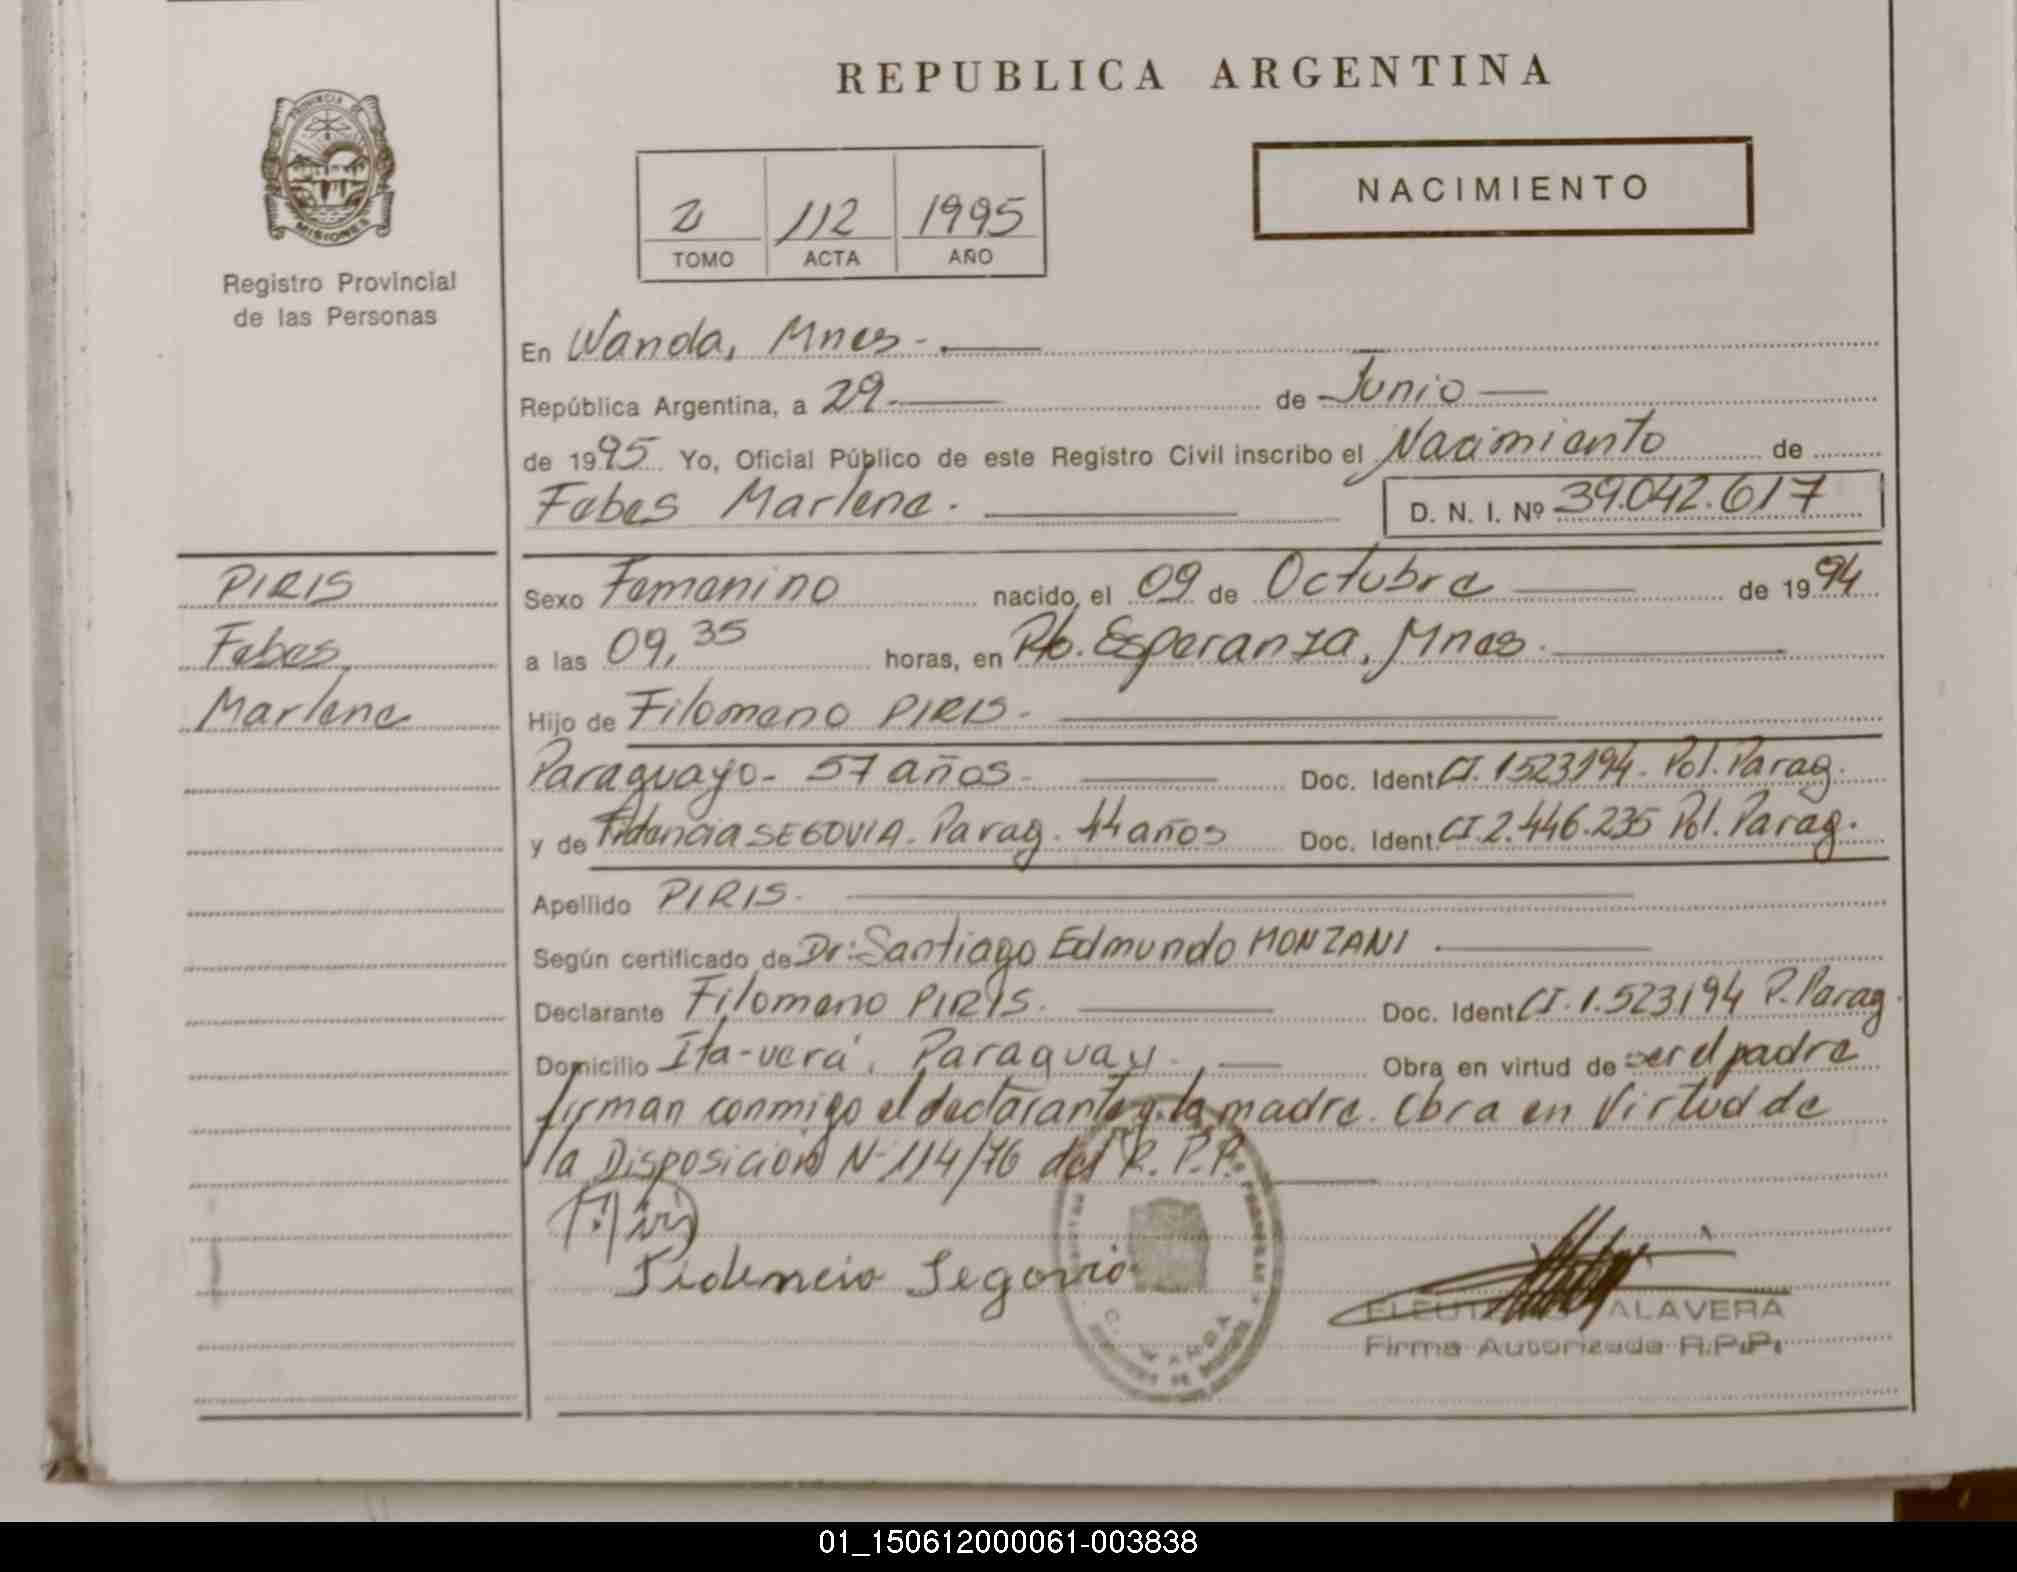 REPUBLICA ARGENTINA
PROVINCIA DE
MISIONES
Registro Provincial
de las Personas
2 112 1995
TOMO ACTA AÑO
NACIMIENTO
En Wanda, Mnes.-
República Argentina, a 29.- de Junio
de 1995 Yo, Oficial Público de este Registro Civil inscribo el Nacimiento de
Fabes Marlene. D. N. I. Nº 39.042.617
PIRIS
Fabes
Marlene
Sexo Femenino nacido, el 09 de Octubre de 1994
a las 09,35 horas, en Pto. Esperanza, Mnes.
Hijo de Filomeno PIRIS.-
Paraguayo.- 57 años.- Doc. Ident CI. 1523194. Pol. Parag.
y de Fidencia SEGOVIA. Parag. 44 años Doc. Ident. CI. 2.446.235 Pol. Parag.
Apellido PIRIS.-
Según certificado de Dr: Santiago Edmundo MONZANI
Declarante Filomeno PIRIS. Doc. Ident CI. 1.523194 P. Parag.
Domicilio Ita-verá, Paraguay. Obra en virtud de ser el padre
firman conmigo el declarante y la madre. Obra en Virtud de
la Disposición N- 114/76 del R. P. P.
Fidencia Segovia
WANDA
ALAVERA
Firma Autorizada R.P.P.
01_150612000061-003838